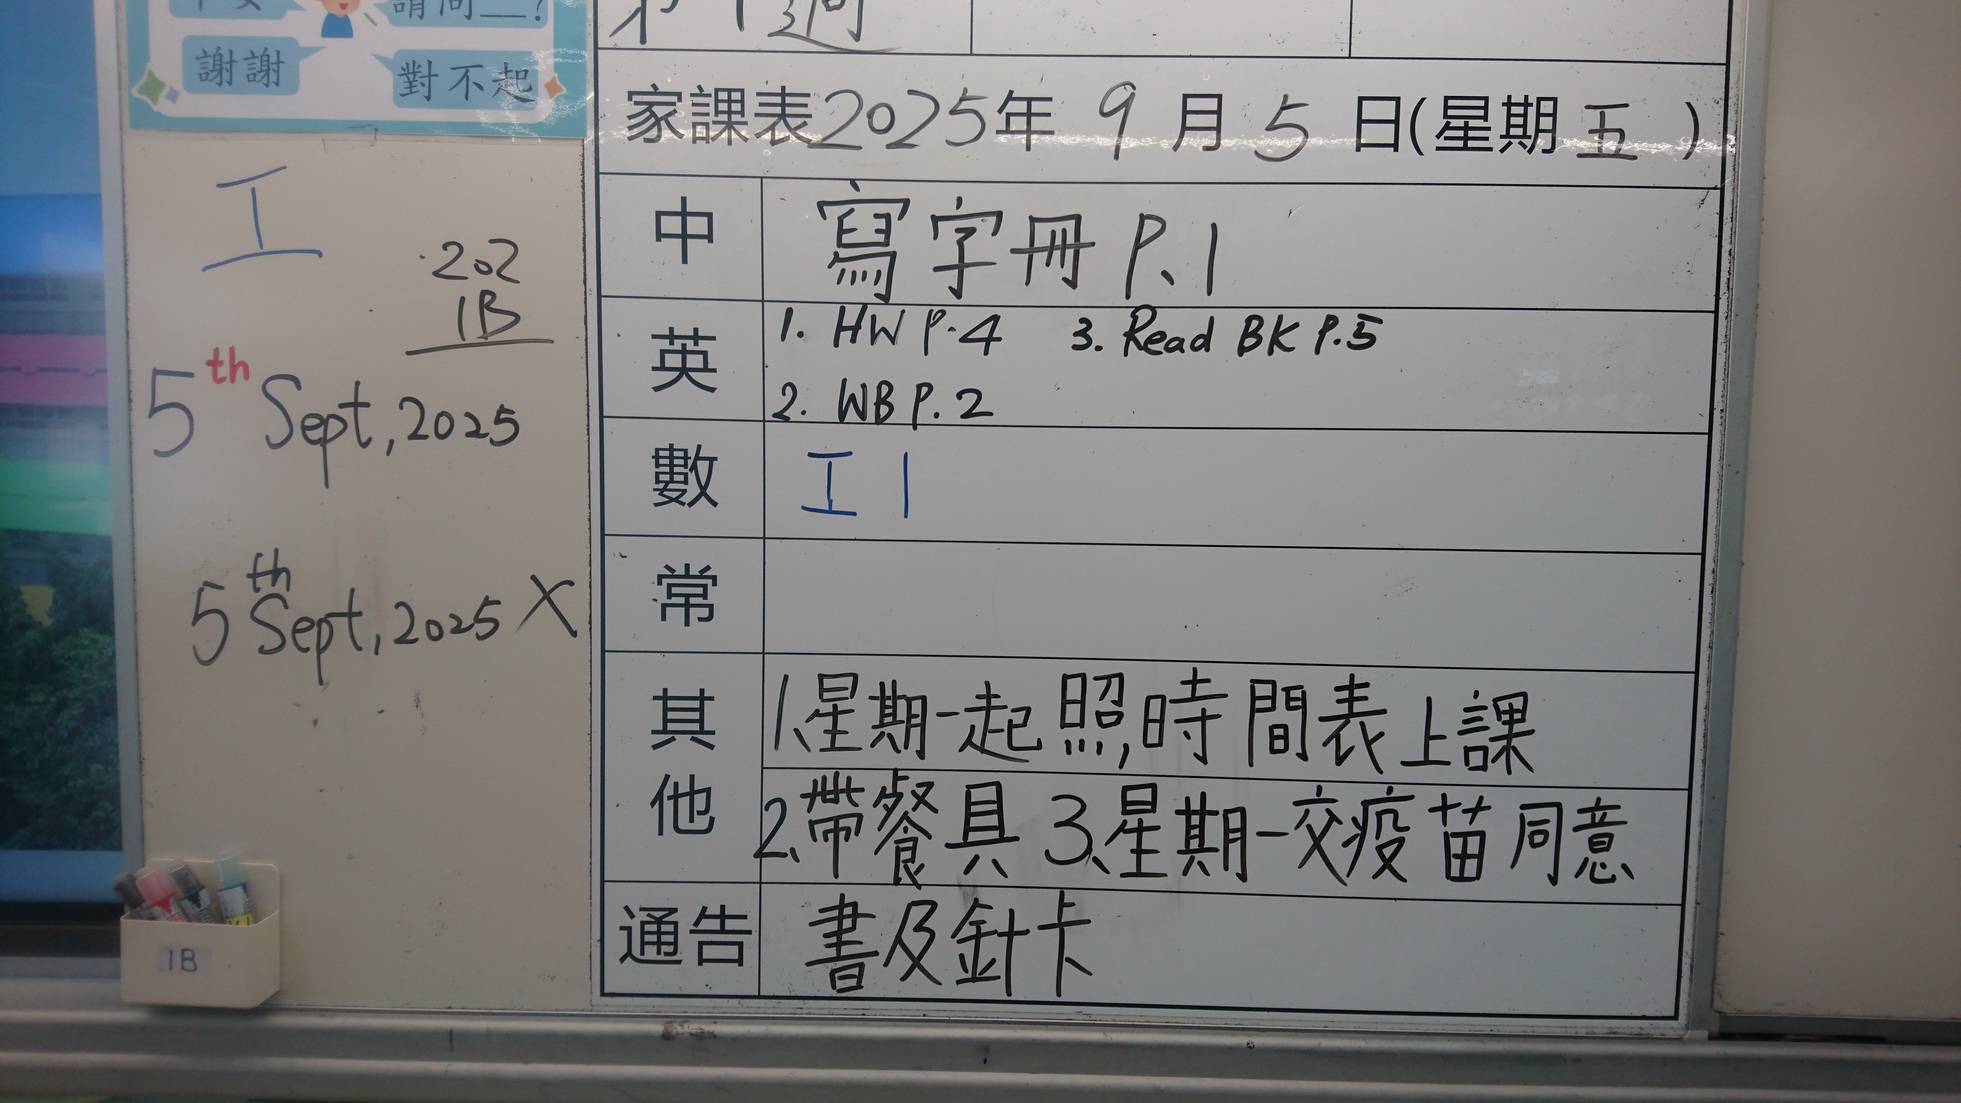 請問__?
謝謝
對不起
第1週
家課表2025年9月5日(星期五)
工
202
1B
5th Sept, 2025
5th Sept, 2025 X
中 寫字冊 P.1
英 1. HW P.4 3. Read BK P.5
2. WB P.2
數 工1
常
其他 1.星期一起照時間表上課
2.帶餐具 3.星期一交疫苗同意
通告 書及針卡
1B